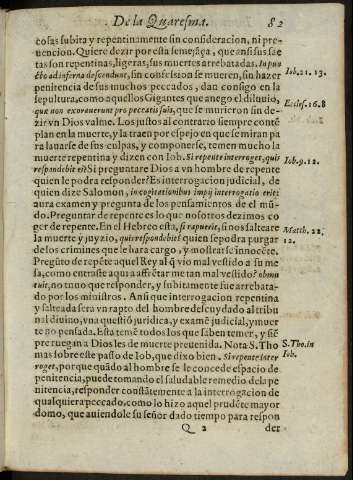 De la Quaresma. 82
cosas subita y repentinamente sin consideracion, ni pre-
uencion. Quiere dezir por esta semejãça, que ansi sus sae
tas son repentinas, ligeras, sus muertes arrebatadas. In pun
cto ad inferna descendunt, sin confession se mueren, sin hazer
penitencia de sus muchos peccados, dan consigo en la
sepultura, como aquellos Gigantes que anego el diluuio,
que non exorauerunt pro peccatis suis, que se murieron sin de-
zir vn Dios valme. Los justos al contrario siempre contẽ
plan en la muerte, y la traen por espejo en que se miran pa
ra lauarse de sus culpas, y componerse, temen mucho la
muerte repentina y dizen con Iob. Si repente interroget, quis
respondebit ei? Si preguntare Dios a vn hombre de repente
quien le podra responder? Es interrogacion judicial, de
quien dize Salomon, in cogitationibus impij interrogatio erit:
aura examen y pregunta de los pensamientos de el mũ-
do. Preguntar de repente es lo que nosotros dezimos co
ger de repente. En el Hebreo esta, si rapuerit, si nos salteare
la muerte y juyzio, quis respondebit? quien se podra purgar
de los crimines que le hara cargo, y mostrarse innocẽte.
Pregũto de repẽte aquel Rey al q̃ vio mal vestido a su me
sa, como entraste aqui a affrẽtar me tan mal vestido? obmu
tuit, no tuuo que responder, y subitamente fue arrebata-
do por los ministros. Ansi que interrogacion repentina
y salteada sera vn rapto del hombre descuydado al tribu
nal diuino, vna questiõ juridica, y examẽ judicial, y muer
te no pensada. Esta temẽ todos los que saben temer, y siẽ
pre ruegan a Dios les de muerte preuenida. Nota S. Tho
mas sobre este passo de Iob, que dixo bien. Si repente inter
roget, porque quãdo al hombre se le concede espacio de
penitencia, puede tomando el saludable remedio de la pe
nitencia, responder constãtemente a la interrogacion de
qualquiera peccado, como lo hizo aquel prudẽte mayor
domo, que auiendole su señor dado tiempo para respon
Q 2 der
Iob. 21. 13.
Eccles. 16. 8
Iob. 9. 12.
Matth. 22.
12.
S. Tho. in
Iob.